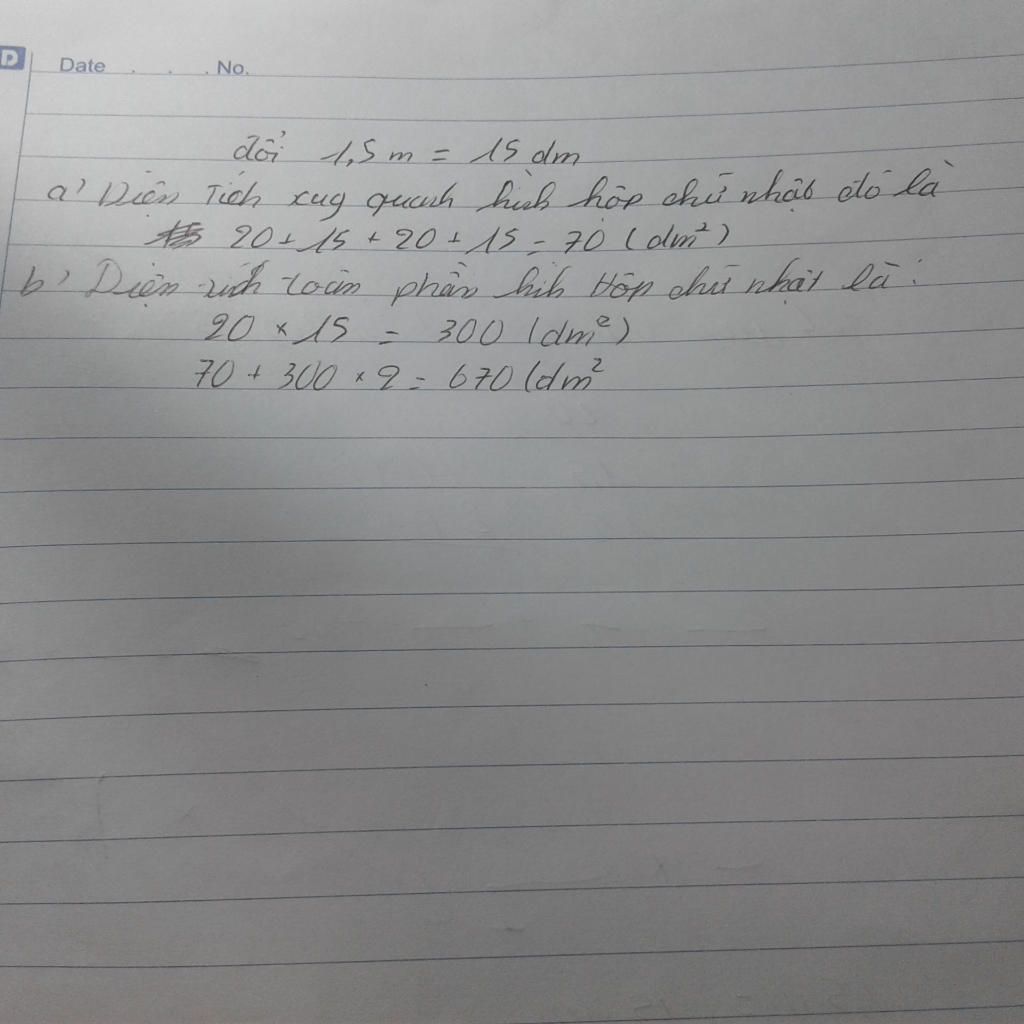 D
Date . . . No.
đổi 1,5 m = 15 dm
a) Diện Tích xug quanh hình hộp chữ nhật đó là
20 + 15 + 20 + 15 = 70 (dm²)
b) Diện tích toàn phần hih Hộp chữ nhật là :
20 × 15 = 300 (dm²)
70 + 300 × 2 = 670 (dm²